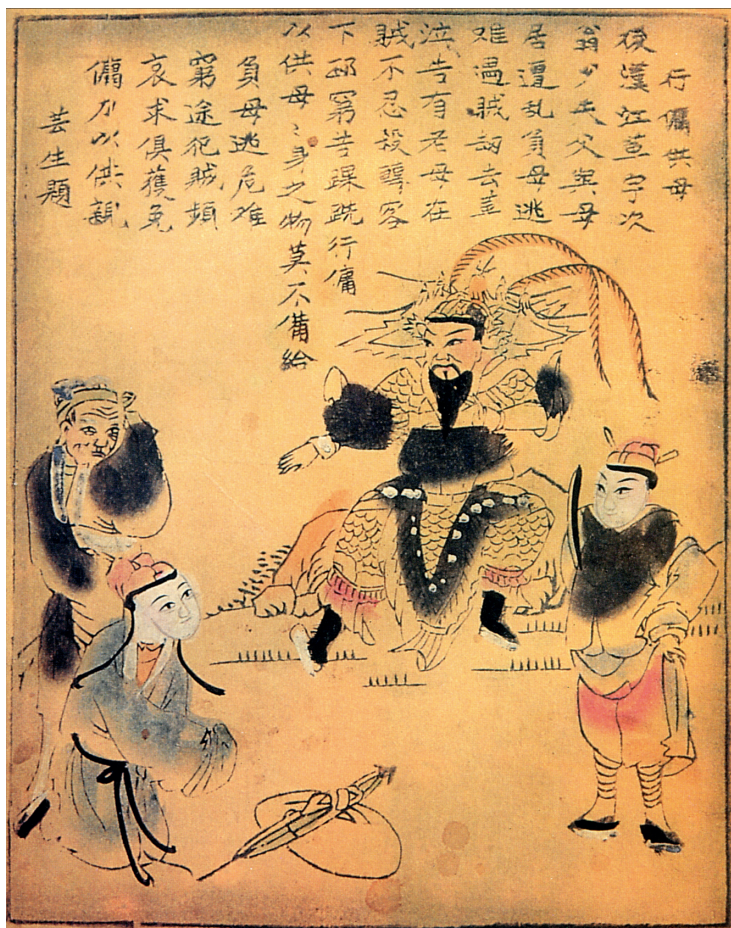 行傭供母
後漢江革字次
翁少失父與母
居遭乱負母逃
难遇賊劫去革
泣告有老母在
賊不忍殺轉客
下邳窮苦踝跣行傭
以供母々身之物莫不備給
負母逃危难
窮途犯賊頻
哀求俱獲免
傭力以供親
芸生題